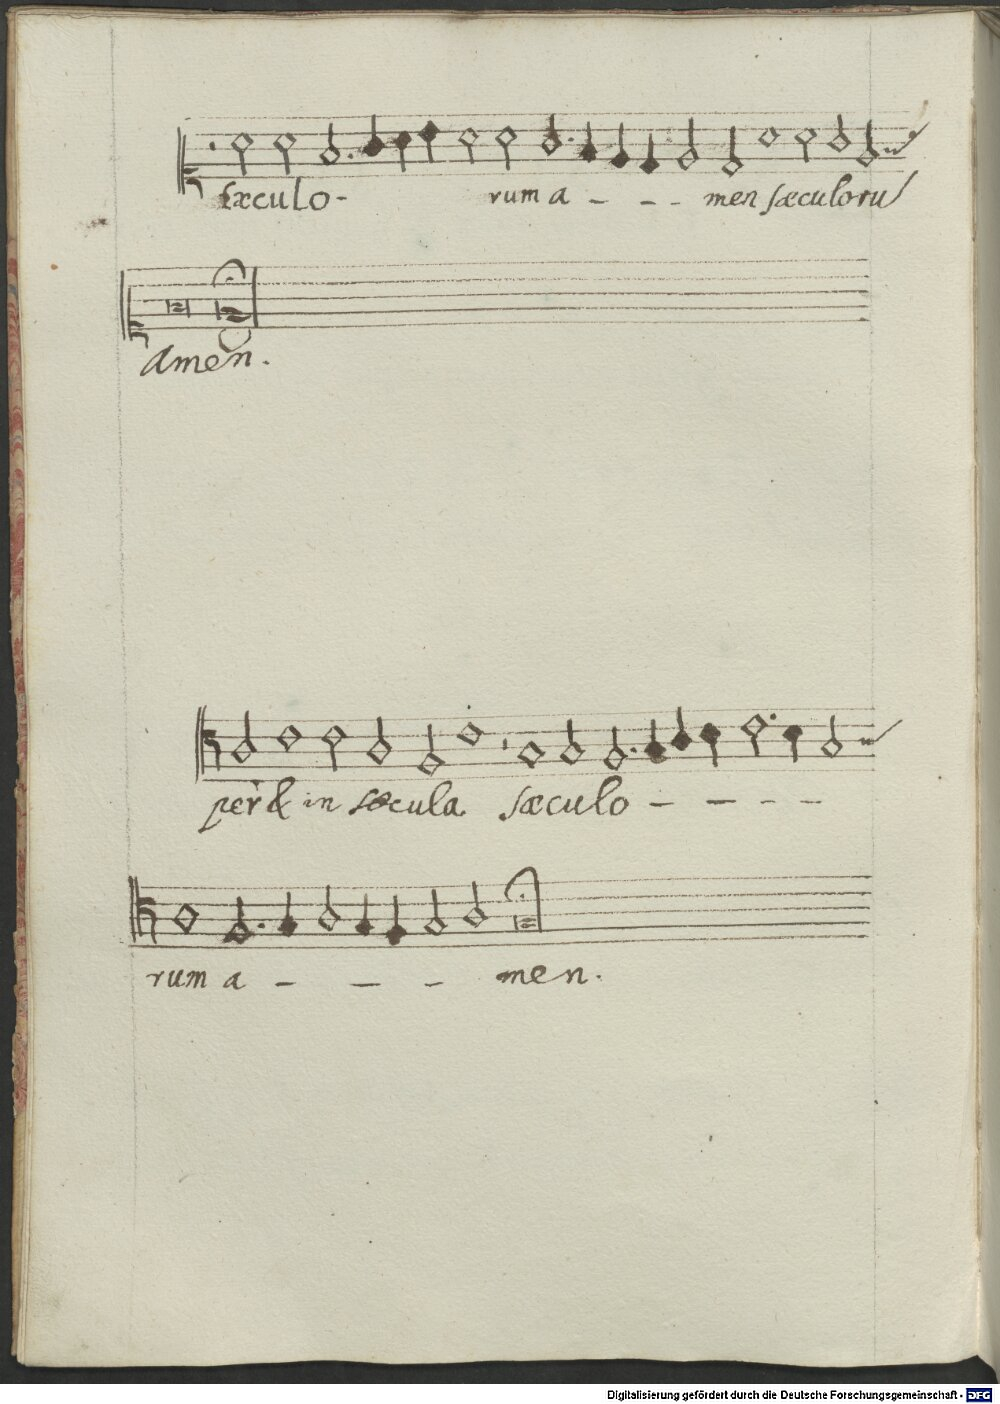 sæculo - rum a - - - men sæculorū
amen.
per & in sæcula sæculo - - - -
rum a - - - men.
Digitalisierung gefördert durch die Deutsche Forschungsgemeinschaft - DFG